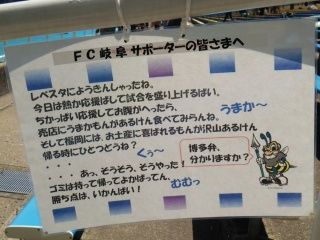 FC岐阜サポーターの皆さまへ
レベスタにようきんしゃったね。
今日は熱か応援ばして試合を盛り上げるばい。
ちかっぱい応援してお腹がへったら、
うまか〜
売店にうまかもんがあるけん食べてみらんね。
そして福岡には、お土産に喜ばれるもんが沢山あるけん
帰る時にひとつどうね？
くぅ〜
・・・・
博多弁、
分かりますか？
・・・・ あっ、そうそう、そうやった！
ゴミは持って帰ってよかばってん、
むむっ
勝ち点は、いかんばい！